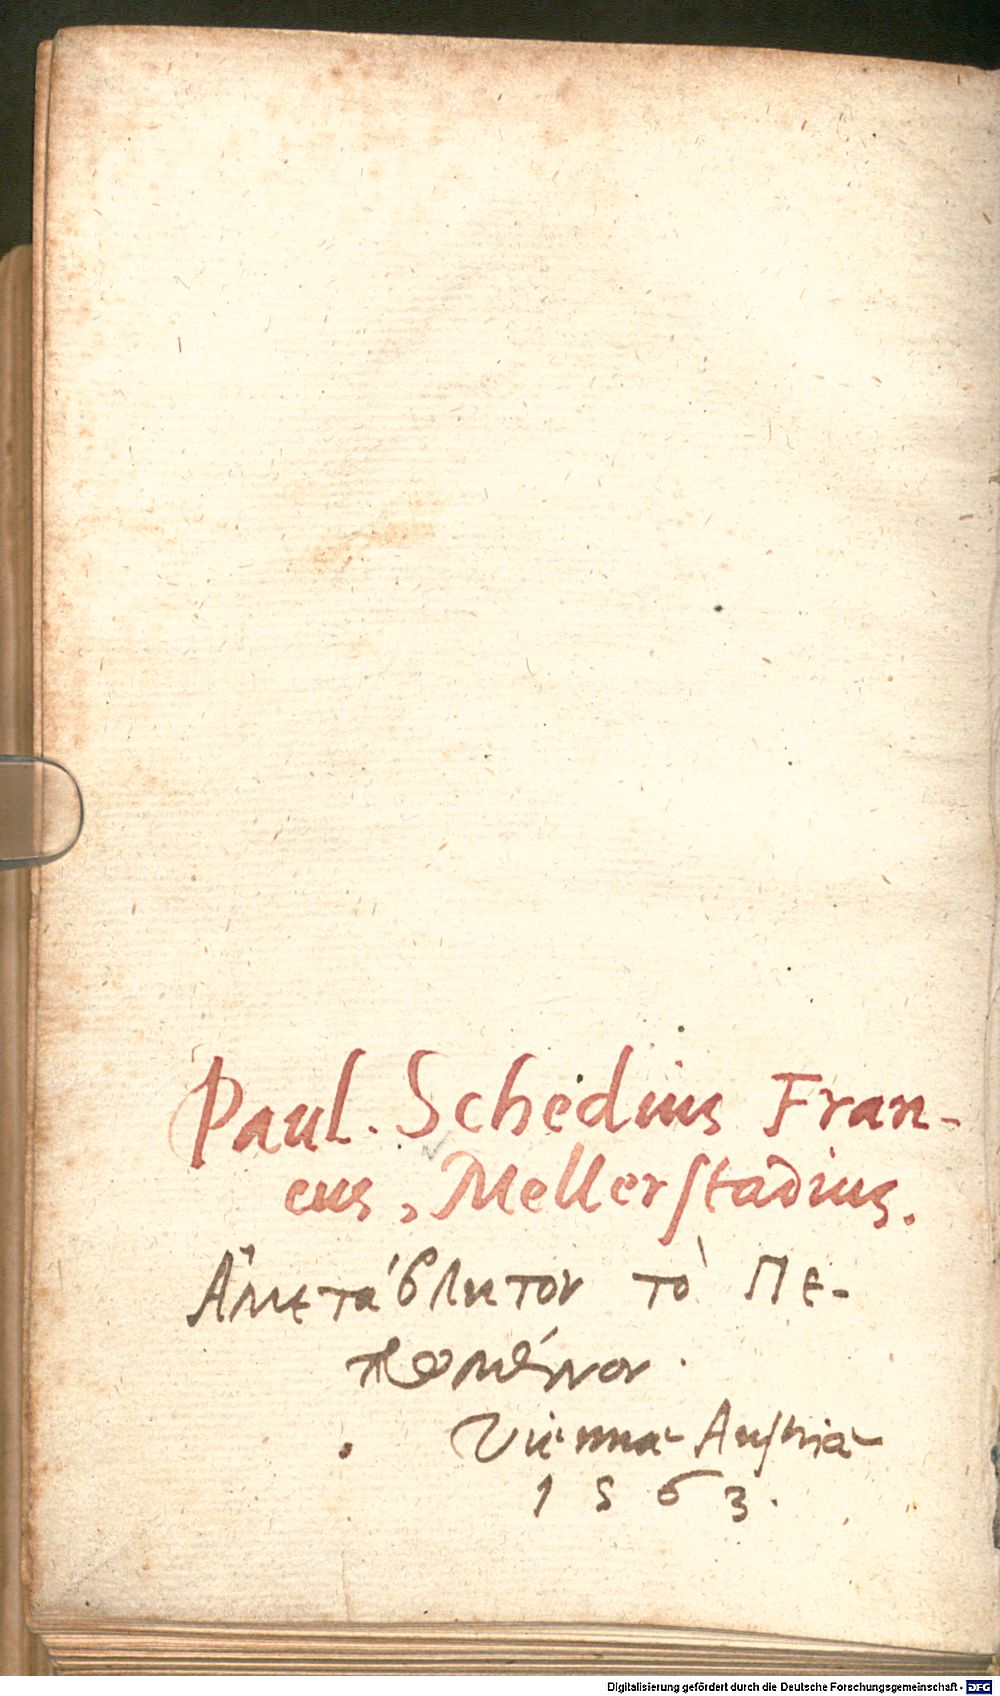 Paul. Schedius Fran-
cus, Mellerſtadius.
Ἀμετάβλητον τὸ Πε-
πρωμένον.
Viennae Auſtriae
1563.
Digitalisierung gefördert durch die Deutsche Forschungsgemeinschaft - DFG